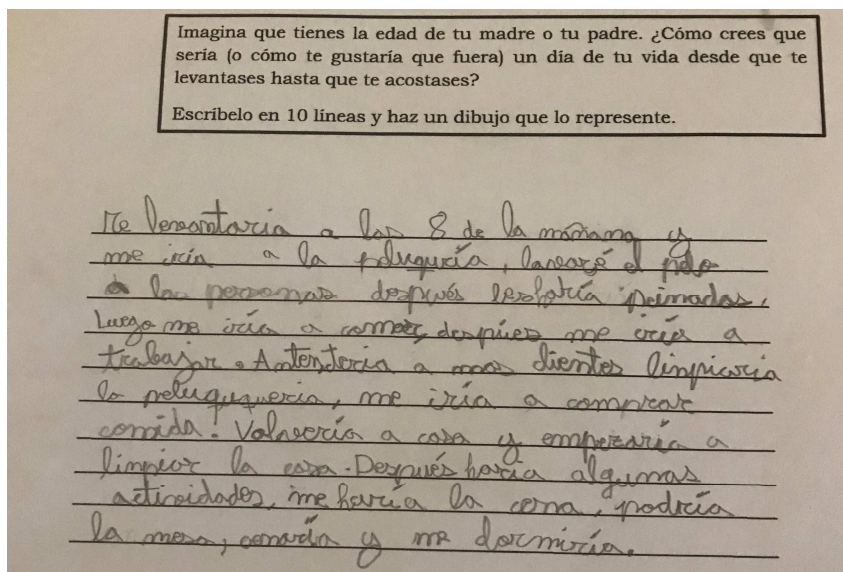 Imagina que tienes la edad de tu madre o tu padre. ¿Cómo crees que
sería (o cómo te gustaría que fuera) un día de tu vida desde que te
levantases hasta que te acostases?
Escríbelo en 10 líneas y haz un dibujo que lo represente.
Me levantaria a las 8 de la mañana y
me iría a la peluquria, lavaré el pelo
a las personas después les haría peinados,
Luego me iría a comer, despúes me iría a
trabajar. Antenderia a mas clientes limpiaria
la peluququeria, me iría a comprar
comida! Volveería a casa y empezaría a
limpiar la casa. Después haria algumas
actividades, me haría la cena, podría
la mesa, cenaría y me dormiría.